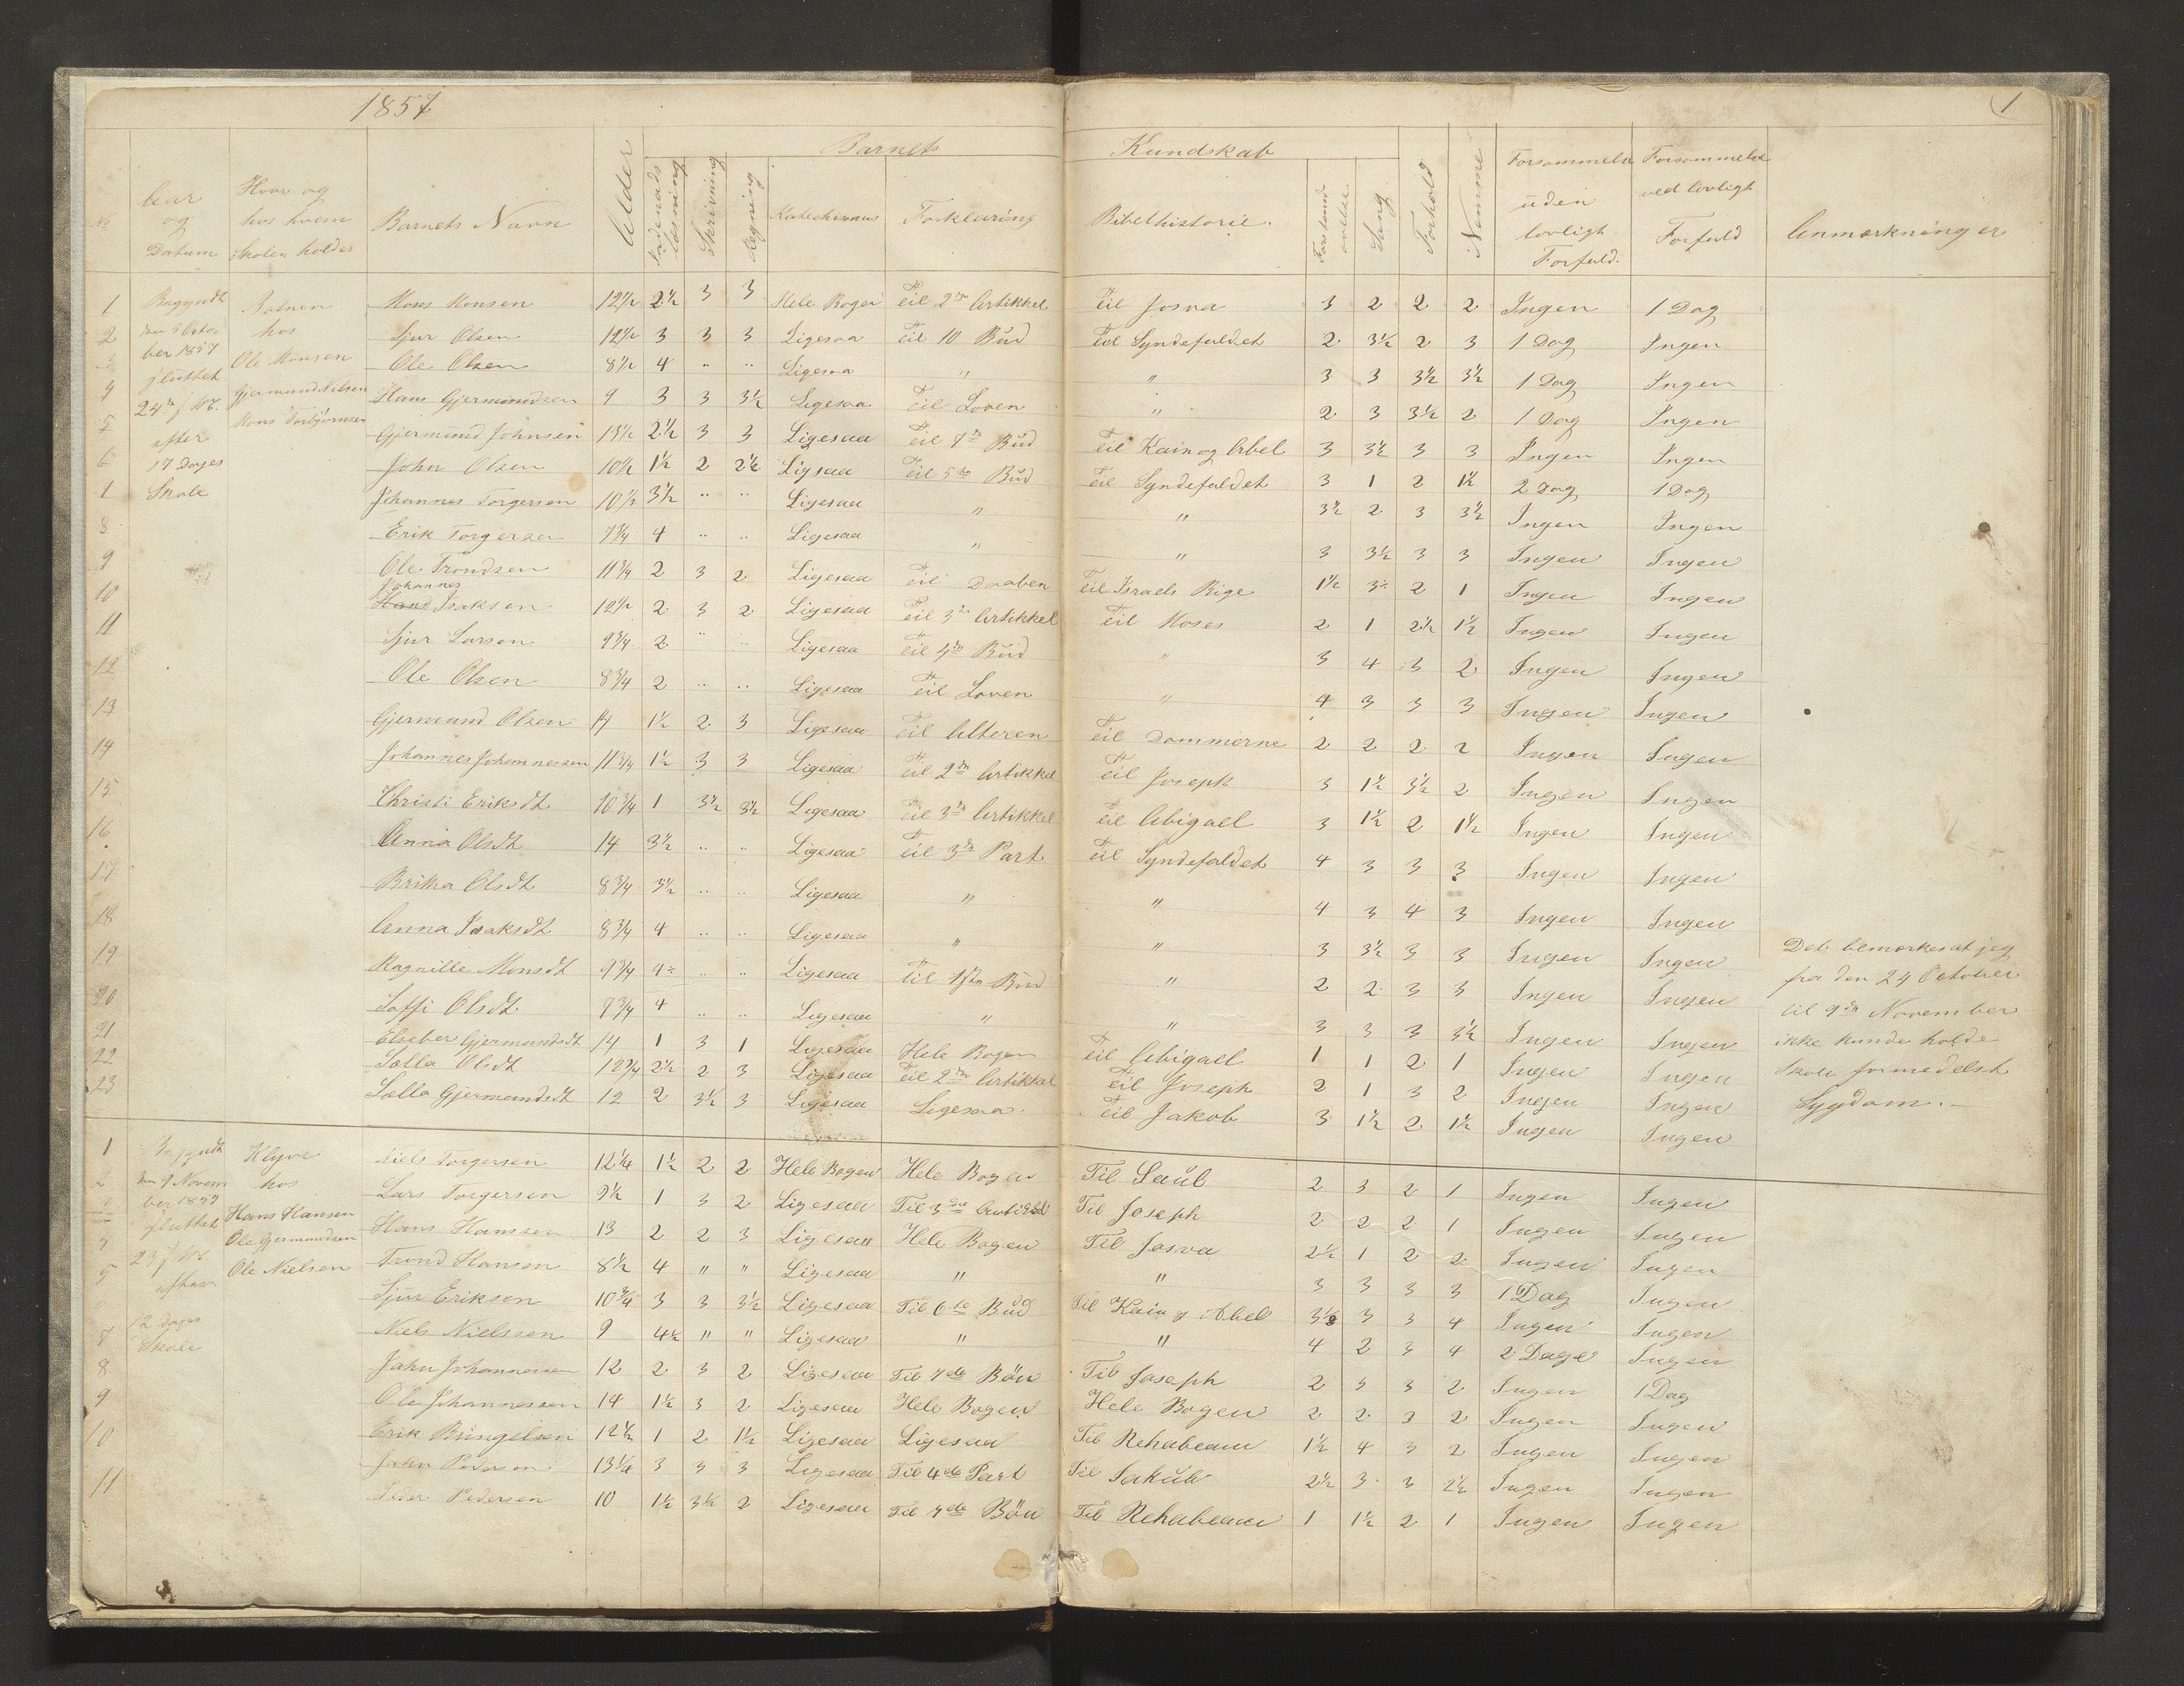 1857
1
Barnets
Kundskab
No
Aar og Datum
Hvor og hos hvem Skolen holdes
Barnets Navn
Alder
Indenads læsning
Skrivning
Regning
Katechismus
Forklaring
Bibelhistorie.
Forstands øvelse
Sang
Forhold
Nemme
Forsømmelse uden lovligt Forfald.
Forsømmelse ved lovligt Forfald
Anmærkninger
Begyndt den 5 Octo ber 1857 sluttet 24de s. M. efter 17 Dages Skole
Botnen hos Ole Monsen Gjermund Nilsen Mons Torbjørnsen
1 Mons Monsen 12½ 2½ 3 3 Hele Bogen Til 2den Artikkel Til Josva 3 2 2 2 Ingen 1 Dag
2 Sjur Olsen 12½ 3 3 3 Ligesaa Til 10 Bud Til Syndefaldet 2 3½ 2 3 1 Dag Ingen
3 Ole Olsen 8½ 4 " " Ligesaa " " 3 3 3½ 3½ 1 Dag Ingen
4 Hans Gjermundsen 9 3 3 3½ Ligesaa Til Loven " 2 3 3½ 2 1 Dag Ingen
5 Gjermund Johnsen 13½ 2½ 3 3 Ligesaa Til 7de Bud Til Kain og Abel 3 3½ 3 3 Ingen Ingen
6 John Olsen 10½ 1½ 2 2½ Ligesaa Til 5te Bud Til Syndefaldet 3 1 2 1½ 2 Dag 1 Dag
7 Johannes Torgersen 10½ 3½ " " Ligesaa " " 3½ 2 3 3½ Ingen Ingen
8 Erik Torgersen 7¾ 4 " " Ligesaa " " 3 3½ 3 3 Ingen Ingen
9 Ole Trondsen 11¾ 2 3 2 Ligesaa Til Daaben Til Israels Rige 1½ 3 2 1 Ingen Ingen
10 Johannes Isaksen 12½ 2 3 2 Ligesaa Til 3die Artikkel Til Moses 2 1 2½ 1½ Ingen Ingen
11 Sjur Larsen 9¾ 2 " " Ligesaa Til 4de Bud " 3 4 3 2 Ingen Ingen
12 Ole Olsen 8¾ 2 " " Ligesaa Til Loven " 4 3 3 3 Ingen Ingen
13 Gjermund Olsen 14 1½ 2 3 Ligesaa Til Alteren Til Dommerne 2 2 2 2 Ingen Ingen
14 Johannes Johannessen 11¾ 1½ 3 3 Ligesaa Til 2den Artikkel Til Joseph 3 1½ 3½ 2 Ingen Ingen
15 Christi Eriksdt 10¾ 1 3½ 3½ Ligesaa Til 3die Artikkel Til Abigael 3 1½ 2 1½ Ingen Ingen
16 Anna Olsdt 14 3½ " " Ligesaa Til 3die Part Til Syndefaldet 4 3 3 3 Ingen Ingen
17 Brita Olsdt 8¾ 3½ " " Ligesaa " " 4 3 4 3 Ingen Ingen
18 Anna Isaksdt 8¾ 4 " " Ligesaa " " 3 3½ 3 3 Ingen Ingen
19 Ragnille Monsdt 9¾ 4 " " Ligesaa Til 1ste Bud " 2 2 3 3 Ingen Ingen
20 Soffi Olsdt 8¾ 4 " " Ligesaa " " 3 3 3 3½ Ingen Ingen
21 Elseber Gjermundsdt 14 1 3 1 Ligesaa Hele Bogen Til Abigael 1 1 2 1 Ingen Ingen
22 Sølla Olsdt 12¾ 2½ 2 3 Ligesaa Til 2den Artikkel Til Joseph 2 1 3 2 Ingen Ingen
23 Sølla Gjermundsdt 12 2 3½ 3 Ligesaa Ligesaa Til Jakob 3 1½ 2 1½ Ingen Ingen
Det bemærkes at jeg
fra den 24 October
til 9de November
ikke kunde holde
Skole formedelst
Sygdom.
Begyndt den 9 Novem ber 1857 sluttet 23 s. M. efter 12 Dages Skole
Klyve hos Hans Hansen Ole Gjermundsen Ole Nielsen
1 Niels Torgersen 12¼ 1½ 2 2 Hele Bogen Hele Bogen Til Saul 2 3 2 1 Ingen Ingen
2 Lars Torgersen 9½ 1 3 2 Ligesaa Til 3die Artikkel Til Joseph 2 2 2 1 Ingen Ingen
3 Hans Hansen 13 2 2 3 Ligesaa Hele Bogen Til Josva 2½ 1 2 2 Ingen Ingen
4 Trond Hansen 8½ 4 " " Ligesaa " " 3 3 3 3 1 Dag Ingen
5 Sjur Eriksen 10¾ 3 3 3½ Ligesaa Til 6te Bud Til Kain og Abel 3½ 3 3 4 Ingen Ingen
Niels Nielssen 9 4½ " " Ligesaa " " 4 2 3 4 2 Dage Ingen
7 John Johannessen 12 2 3 2 Ligesaa Til 7de Bøn Til Joseph 2 3 3 2 Ingen 1 Dag
8 Ole Johannessen 14 1½ 3 2 Ligesaa Hele Bogen Hele Bogen 2 2 3 2 Ingen Ingen
9 Erik Bringelsen 12½ 1 2 1½ Ligesaa Ligesaa Til Rehabeam 1½ 4 3 2 Ingen Ingen
10 John Pedersen 13¼ 3 3 3 Ligesaa Til 4de Part Til Jakob 2½ 3 3 2½ Ingen Ingen
11 Peder Pedersen 10 1½ 3½ 2 Ligesaa Til 7de Bøn Til Rehabeam 1 1½ 2 1 Ingen Ingen